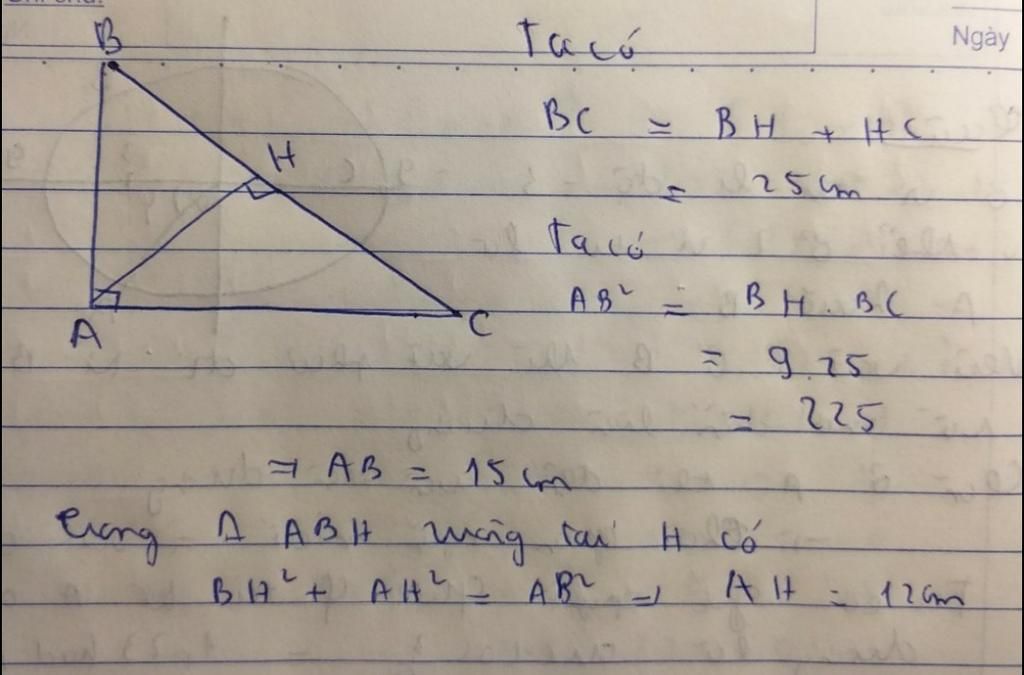 Ngày
B
H
A
C
Ta có
BC = BH + HC
= 25 cm
Ta có
AB² = BH . BC
= 9.25
= 225
⇒ AB = 15 cm
trong Δ ABH vuông tại H có
BH² + AH² = AB² ⇒ AH = 12cm